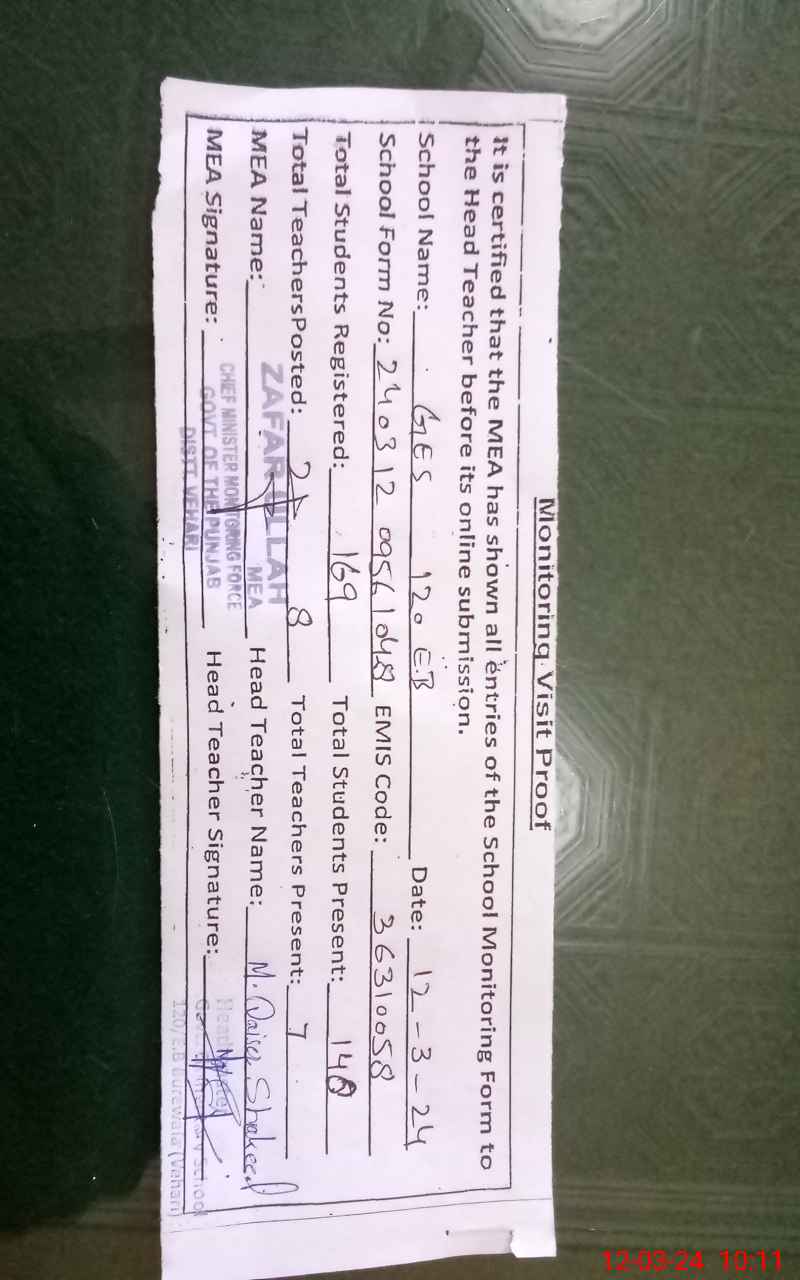 Monitoring Visit Proof
It is certified that the MEA has shown all entries of the School Monitoring Form to
the Head Teacher before its online submission.
School Name: GES 120 E.B Date: 12-3-24
School Form No: 240312 09561048 EMIS Code: 36310058
Total Students Registered: 169 Total Students Present: 140
Total TeachersPosted: 8 Total Teachers Present: 7
MEA Name: ZAFAR ULLAH Head Teacher Name: M. Qaiser Shakeel
MEA
MEA Signature: Head Teacher Signature:
CHIEF MINISTER MONITORING FORCE
GOVT. OF THE PUNJAB
DISTT. VEHARI
Head
School
120/E.B Burewala (Vehari)
12-03-24 10:11